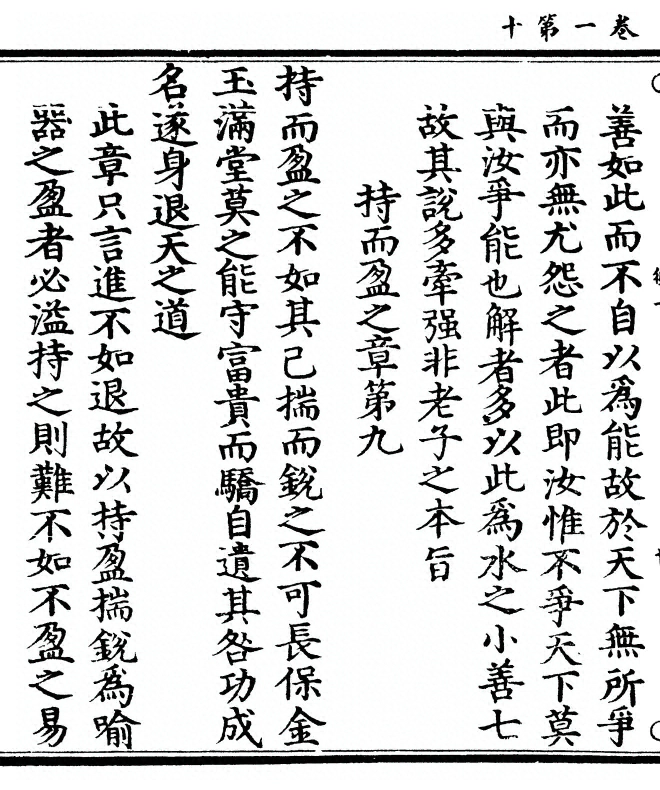 卷一第十
善如此而不自以爲能故於天下無所爭
而亦無尤怨之者此即汝惟不爭天下莫
與汝爭能也解者多以此爲水之小善七
故其說多牽强非老子之本旨
持而盈之章第九
持而盈之不如其己揣而銳之不可長保金
玉滿堂莫之能守富貴而驕自遺其咎功成
名遂身退天之道
此章只言進不如退故以持盈揣銳爲喻
器之盈者必溢持之則難不如不盈之易